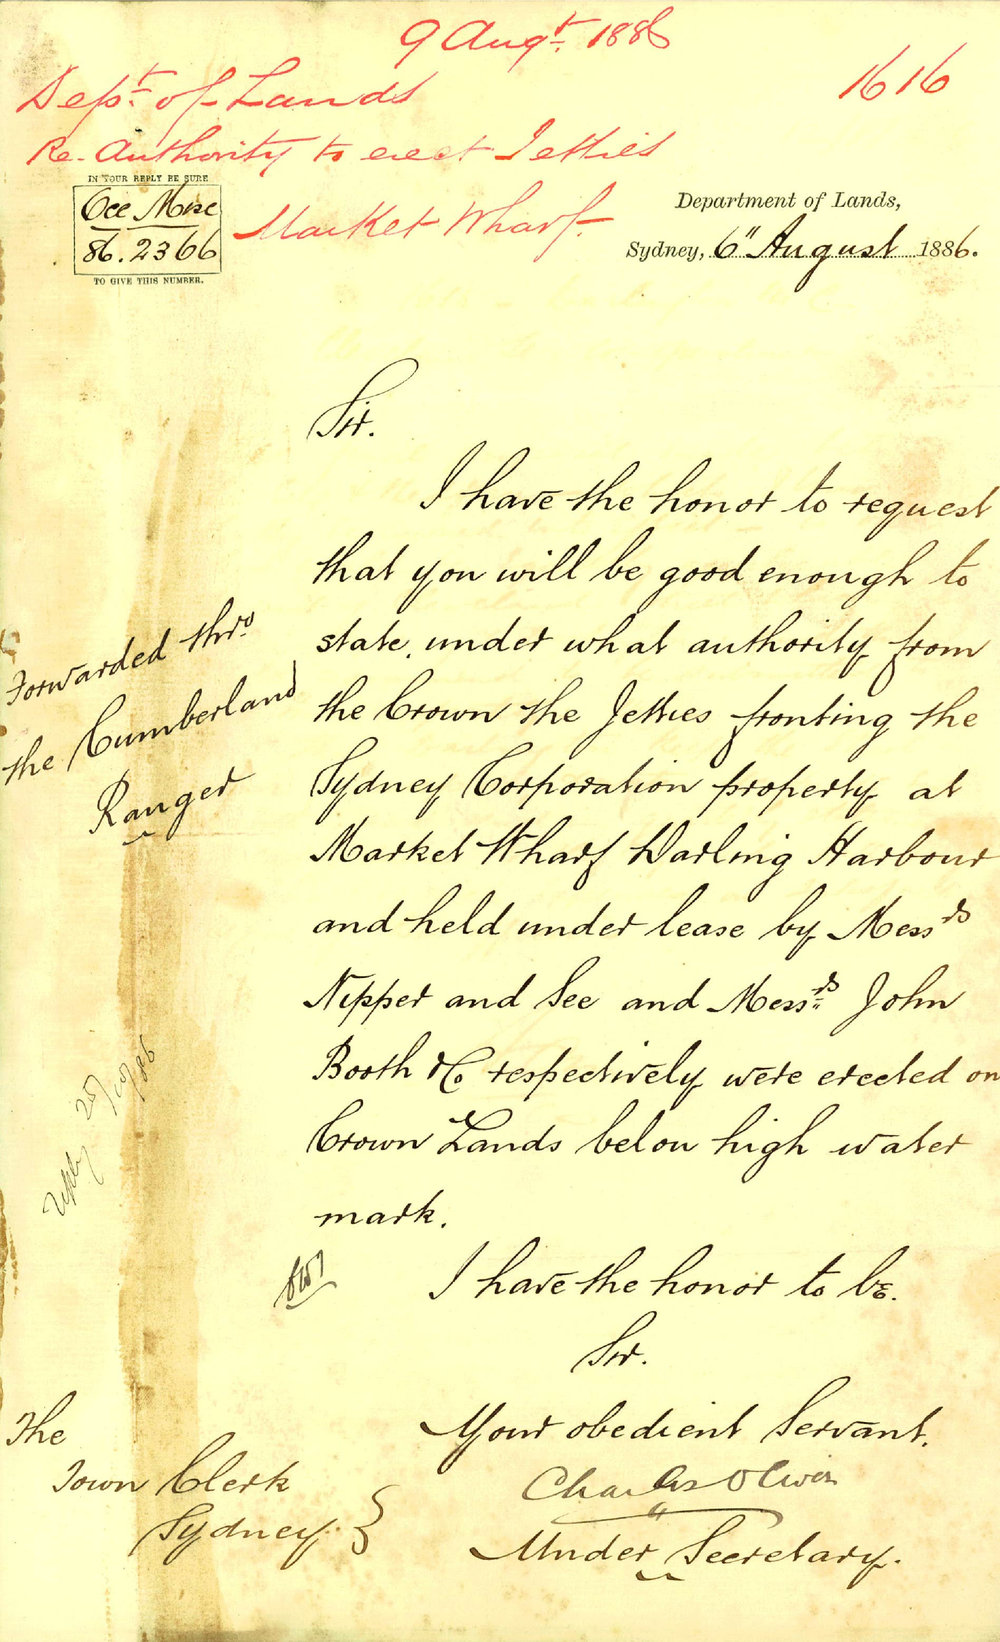 9 Augt. 1886
1616
Dept. of Lands
Re- Authority to erect Jetties
Market Wharf.
IN YOUR REPLY BE SURE
Occ Misc
86.2366
TO GIVE THIS NUMBER.
Department of Lands,
Sydney, 6" August 1886.
Sir.
I have the honor to request
that you will be good enough to
state, under what authority from
the Crown the Jetties fronting the
Sydney Corporation property at
Market Wharf Darling Harbour
and held under lease by Messrs
Nipper and See and Messrs. John
Booth & Co respectively were erected on
Crown Lands below high water
mark.
Forwarded thro
the Cumberland
Ranger
25/10/86
I have the honor to be.
Sir.
Your obedient Servant.
Charles Oliver
Under Secretary.
The
Town Clerk
Sydney